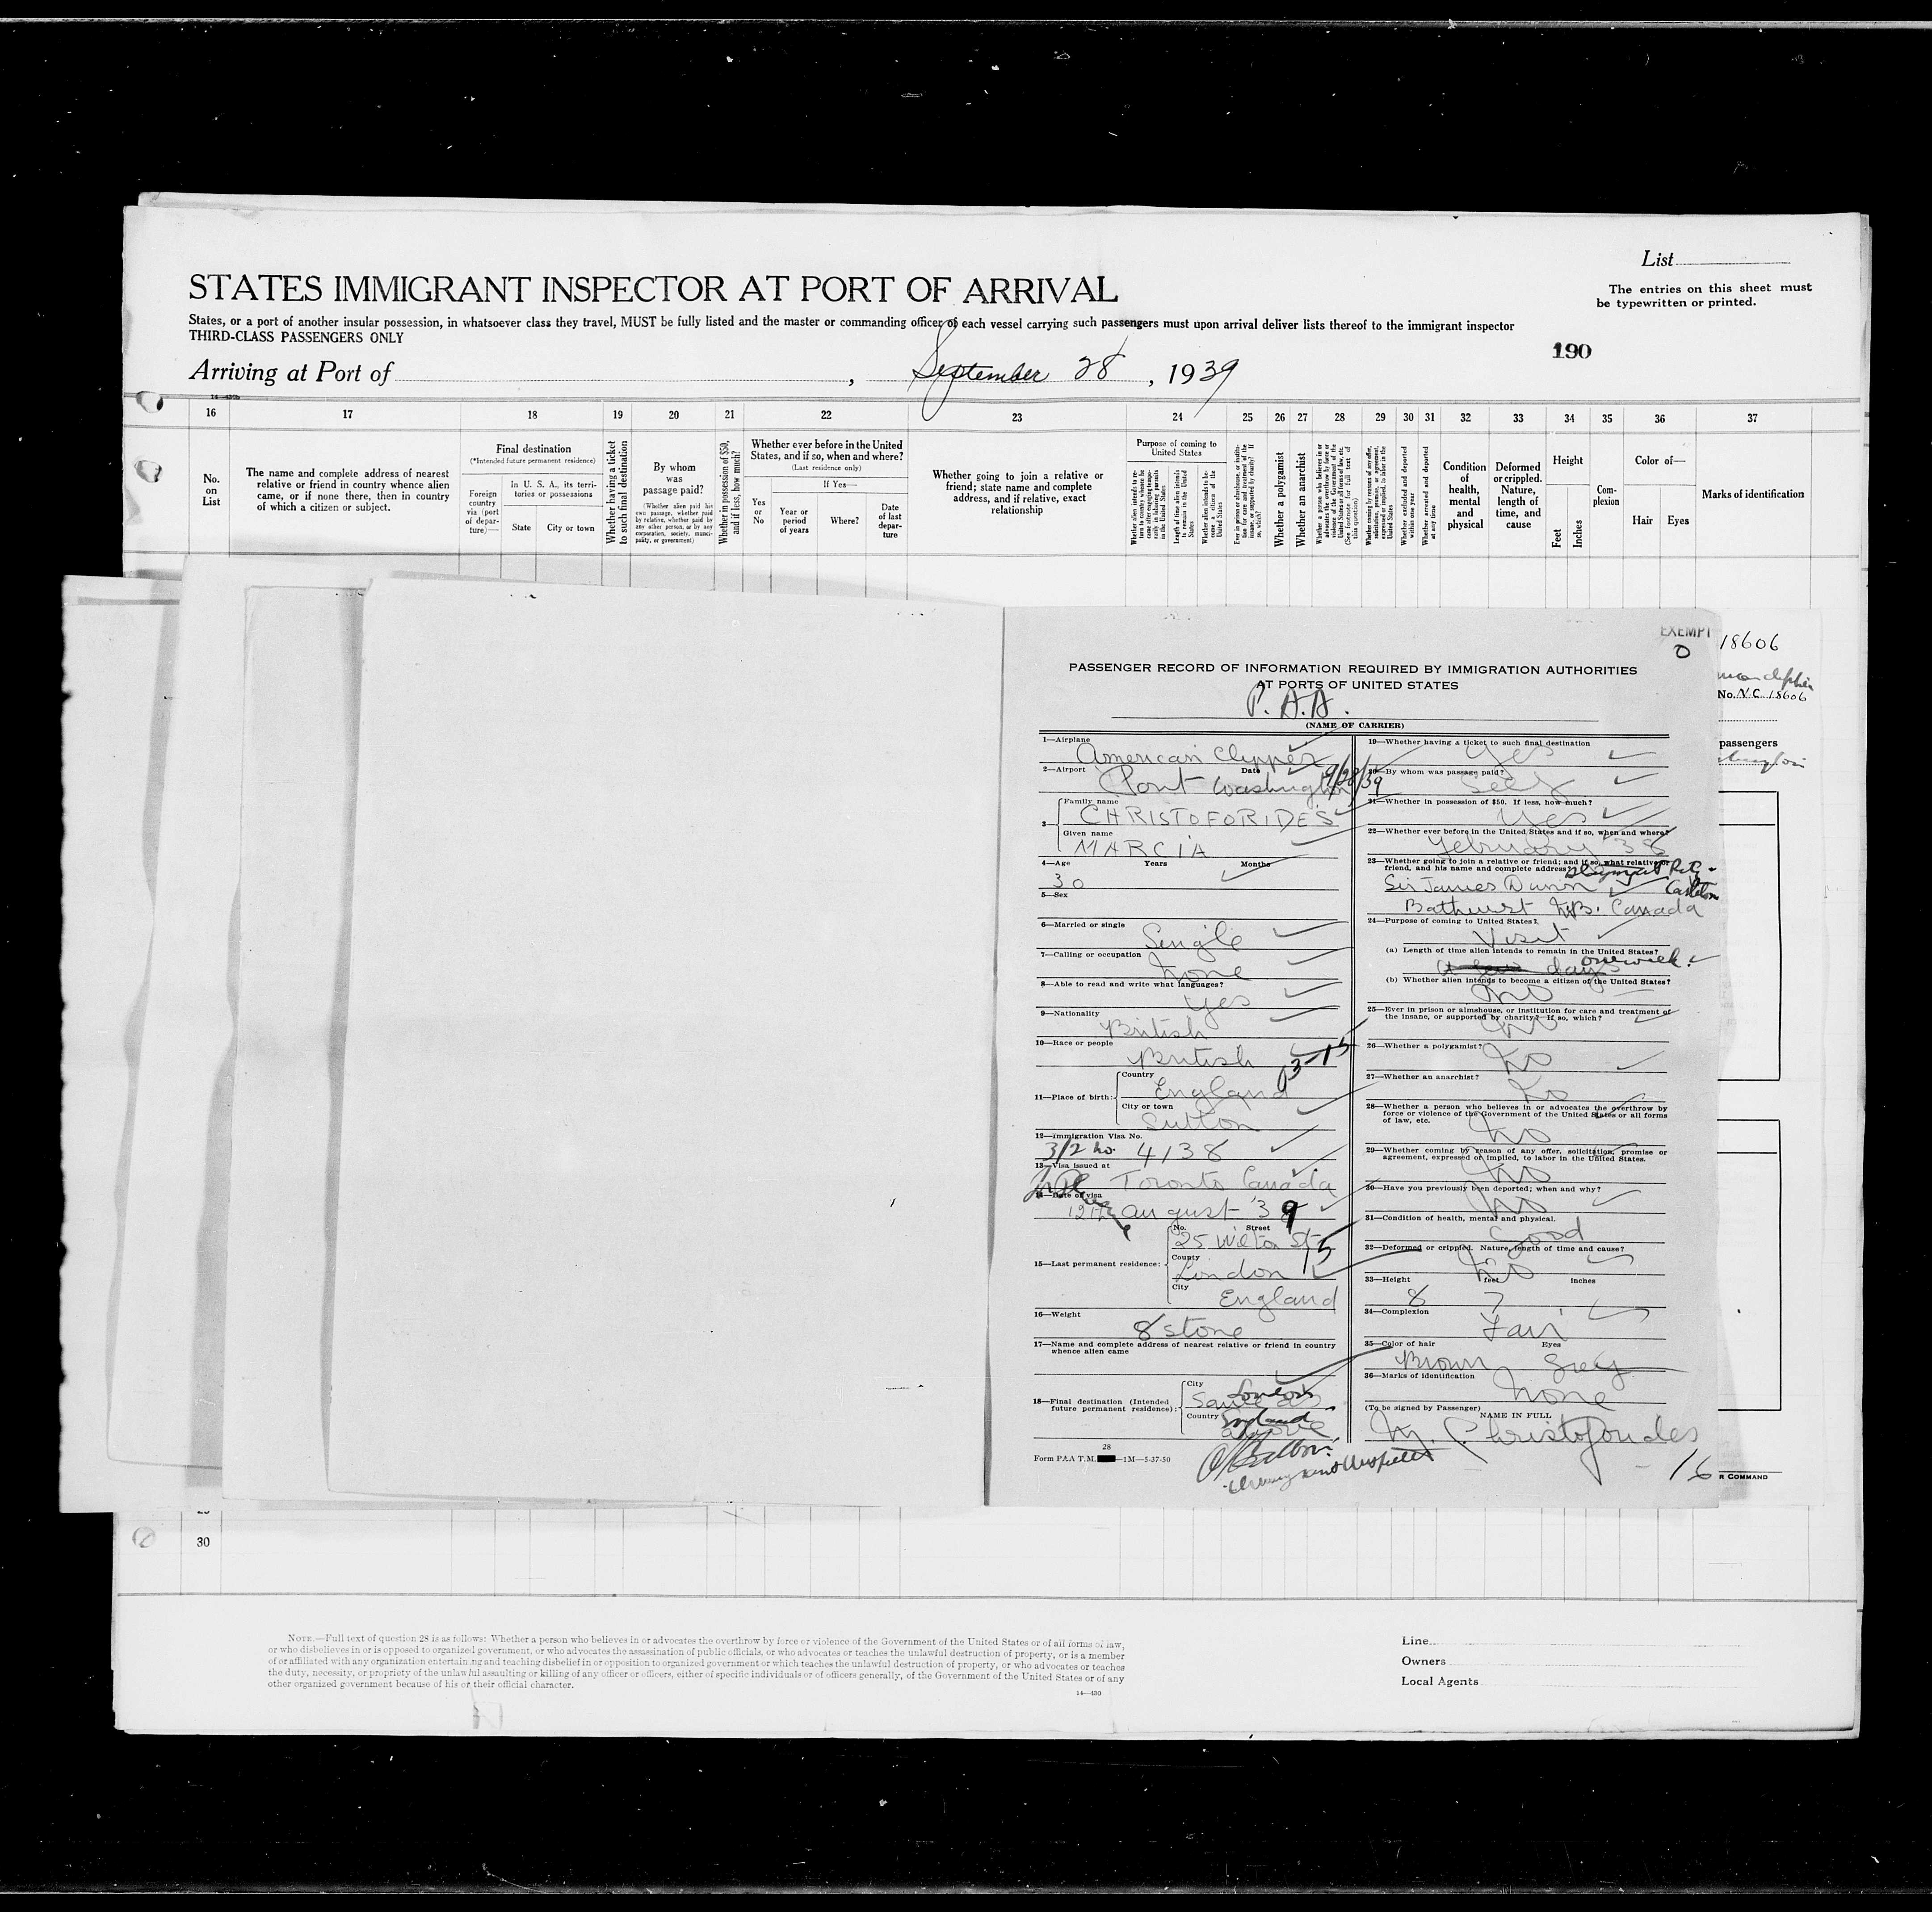 List
STATES IMMIGRANT INSPECTOR AT PORT OF ARRIVAL
The entries on this sheet must
be typewritten or printed.
States, or a port of another insular possession, in whatsoever class they travel, MUST be fully listed and the master or commanding officer of each vessel carrying such passengers must upon arrival deliver lists thereof to the immigrant inspector
THIRD-CLASS PASSENGERS ONLY
190
Arriving at Port of , September 28 , 1939
16 17 18 19 20 21 22 23 24 25 26 27 28 29 30 31 32 33 34 35 36 37
No. on List
The name and complete address of nearest relative or friend in country whence alien came, or if none there, then in country of which a citizen or subject.
Final destination
(*Intended future permanent residence)
Foreign country via (port of departure)—
In U. S. A., its territories or possessions
State
City or town
Whether having a ticket to such final destination
By whom was passage paid?
(Whether alien paid his own passage, whether paid by relative, whether paid by any other person, or by any corporation, society, municipality, or government)
Whether in possession of $50, and if less, how much?
Whether ever before in the United States, and if so, when and where?
(Last residence only)
Yes or No
If Yes—
Year or period of years
Where?
Date of last departure
Whether going to join a relative or friend; state name and complete address, and if relative, exact relationship
Purpose of coming to United States
Length of time alien intends to remain in the United States
Whether alien intends to become a citizen of the United States
Whether a polygamist
Whether an anarchist
Whether excluded and deported within one year
Whether arrested and deported at any time
Condition of health, mental and physical
Deformed or crippled. Nature, length of time, and cause
Height
Feet
Inches
Complexion
Color of—
Hair
Eyes
Marks of identification
EXEMPT
0
18606
No. N.C. 18606
passengers
PASSENGER RECORD OF INFORMATION REQUIRED BY IMMIGRATION AUTHORITIES
AT PORTS OF UNITED STATES
P. A.A.
(NAME OF CARRIER)
1—Airplane
American Clipper
2—Airport Date
Port Washington 9/28/39
3—
Family name
CHRISTOFORIDES
Given name
MARCIA
4—Age Years Months
30
5—Sex
6—Married or single
Single
7—Calling or occupation
None
8—Able to read and write what languages?
Yes
9—Nationality
British
10—Race or people
British
03-15
11—Place of birth:
Country
England
City or town
Sutton
12—Immigration Visa No.
3/2 no. 4138
13—Visa issued at
Toronto Canada
14—Date of visa
12th August 39
15—Last permanent residence:
No. Street
25 Wilton St
15
County
London
City
England
16—Weight
8 stone
17—Name and complete address of nearest relative or friend in country
whence alien came
18—Final destination (Intended
future permanent residence):
City
Same as
London
Country
above
England
28
Form P.A.A T.M. —1M—5-37-50
19—Whether having a ticket to such final destination
Yes
20—By whom was passage paid?
Self
21—Whether in possession of $50. If less, how much?
Yes
22—Whether ever before in the United States and if so, when and where?
February 38
23—Whether going to join a relative or friend; and if so, what relative or
friend, and his name and complete address?
Sir James Dunn
Bathurst N.B. Canada
24—Purpose of coming to United States?
Visit
(a) Length of time alien intends to remain in the United States?
a few days one week.
(b) Whether alien intends to become a citizen of the United States?
No
25—Ever in prison or almshouse, or institution for care and treatment of
the insane, or supported by charity? If so, which?
No
26—Whether a polygamist?
No
27—Whether an anarchist?
No
28—Whether a person who believes in or advocates the overthrow by
force or violence of the Government of the United States or all forms
of law, etc.
No
29—Whether coming by reason of any offer, solicitation, promise or
agreement, expressed or implied, to labor in the United States.
No
30—Have you previously been deported; when and why?
No
31—Condition of health, mental and physical.
Good
32—Deformed or crippled. Nature, length of time and cause?
No
33—Height feet inches
8 7
34—Complexion
Fair
35—Color of hair Eyes
Brown Grey
36—Marks of identification
None
(To be signed by Passenger)
NAME IN FULL
M. Christoforides
16
R COMMAND
30
NOTE.—Full text of question 28 is as follows: Whether a person who believes in or advocates the overthrow by force or violence of the Government of the United States or of all forms of law,
or who disbelieves in or is opposed to organized government, or who advocates the assassination of public officials, or who advocates or teaches the unlawful destruction of property, or is a member
of or affiliated with any organization entertaining and teaching disbelief in or opposition to organized government or which teaches the unlawful destruction of property, or who advocates or teaches
the duty, necessity, or propriety of the unlawful assaulting or killing of any officer or officers, either of specific individuals or of officers generally, of the Government of the United States or of any
other organized government because of his or their official character.
14—430
Line
Owners
Local Agents